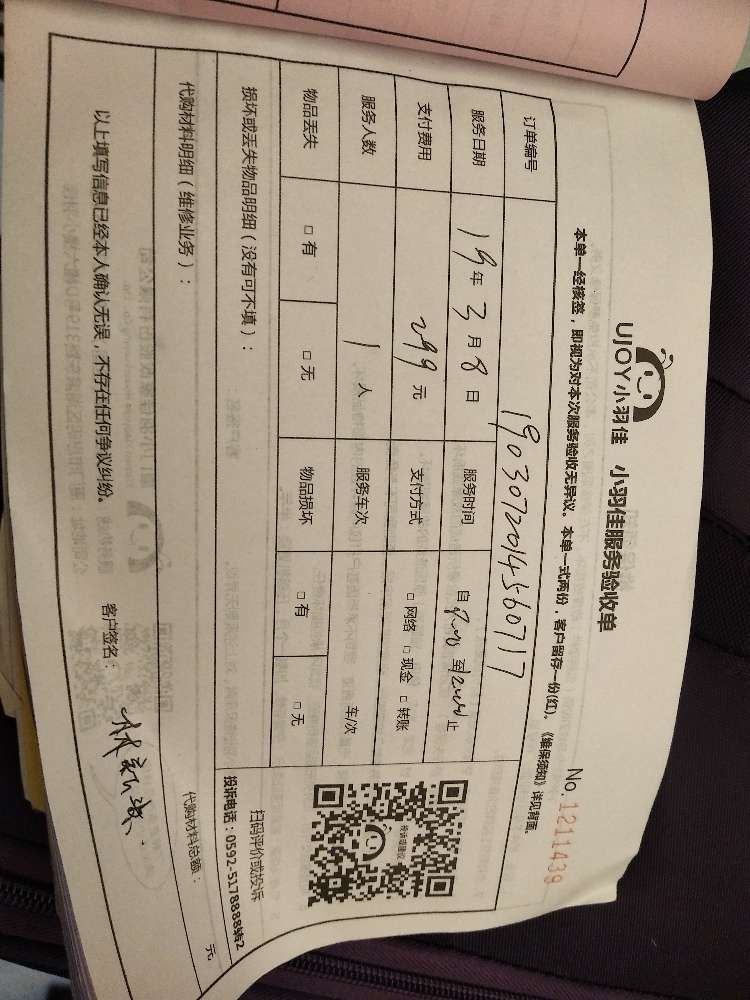 UJOY小羽佳 小羽佳服务验收单
No.1211439
本单一经核签，即视为对本次服务验收无异议。本单一式两份，客户留存一份(红)，《维保须知》详见背面。
订单编号 1903072014560717
服务日期 19年3月8日 服务时间 自 至 止
支付费用 299元 支付方式 □网络 □现金 □转账
服务人数 1人 服务车次 车/次
物品丢失 □有 □无 物品损坏 □有 □无
损坏或丢失物品明细（没有可不填）：
投诉或建议
扫码评价或投诉
投诉电话：0592-5178888转2
代购材料明细（维修业务）：
代购材料总额： 元
以上填写信息已经本人确认无误，不存在任何争议纠纷。 客户签名：